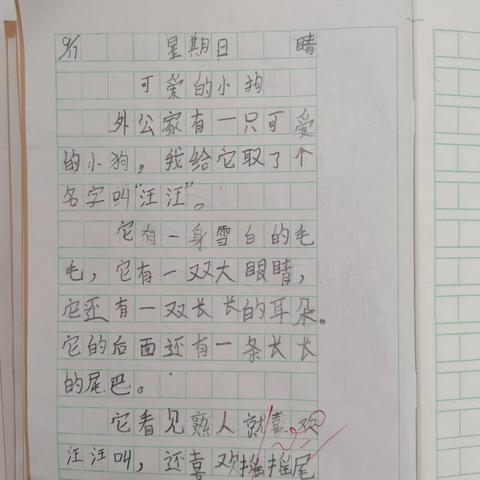 9/17 星期日 晴
可爱的小狗
外公家有一只可爱
的小狗，我给它取了个
名字叫“汪汪”。
它有一身雪白的毛
毛，它有一双大眼睛，
它还有一双长长的耳朵。
它的后面还有一条长长
的尾巴。
它看见熟人就喜欢
汪汪叫，还喜欢摇摇尾